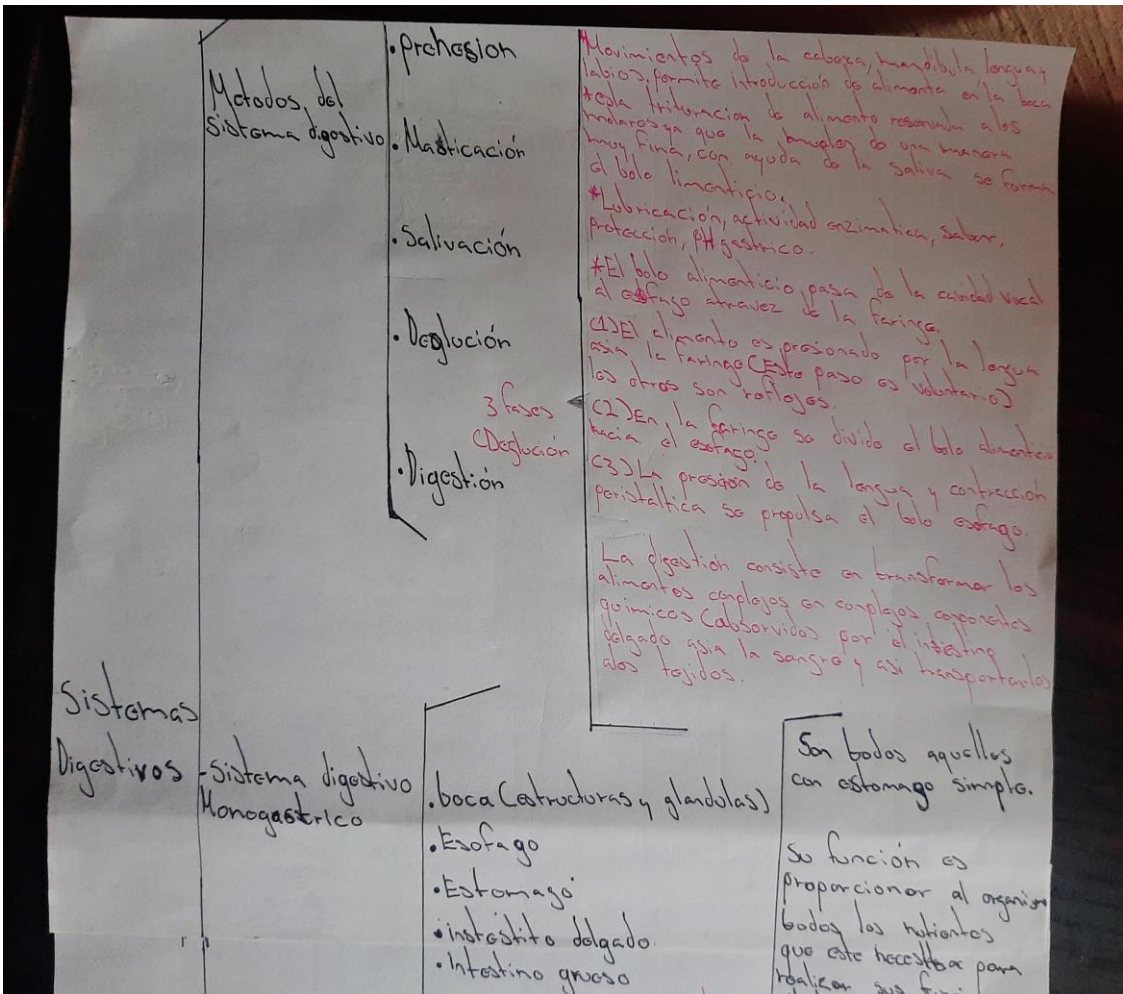 Metodos del
sistema digestivo
.prehesion
.Masticación
.Salivación
.Deglución
3 fases
(Deglución
.Digestión
*Movimientos de la cabeza, mandibula lengua y
labios, permite introducción de alimento en la boca
*es la trituracion de alimento reservada a los
molares ya que la muelen de una manera
muy fina, con ayuda de la saliva se forma
el bolo limenticio.
*Lubricación, actividad enzimatica, sabor,
protección, pH gastrico.
*El bolo alimenticio pasa de la cavidad vocal
al esofago atravez de la faringe.
(1)El alimento es presionado por la lengua
asia la faringe (Este paso es voluntario)
los otros son reflejos.
(2)En la faringe se divide el bolo alimenticio
hacia el esofago.
(3)La presión de la lengua y contracción
peristaltica se propulsa el bolo esofago.
La digestión consiste en transformar los
alimentos complejos en complejos componentes
quimicos (absorvidos por el intestino
delgado asia la sangre y asi transportarlos
alos tejidos.
Sistemas
Digestivos
-Sistema digestivo
Monogastrico
.boca (estructuras y glandulas)
.Esofago
.Estomago
.instestito delgado
.Intestino grueso
Son todos aquellos
con estomago simple.
Su función es
proporcionar al organism
todos los nutientes
que este necesita para
realizar sus